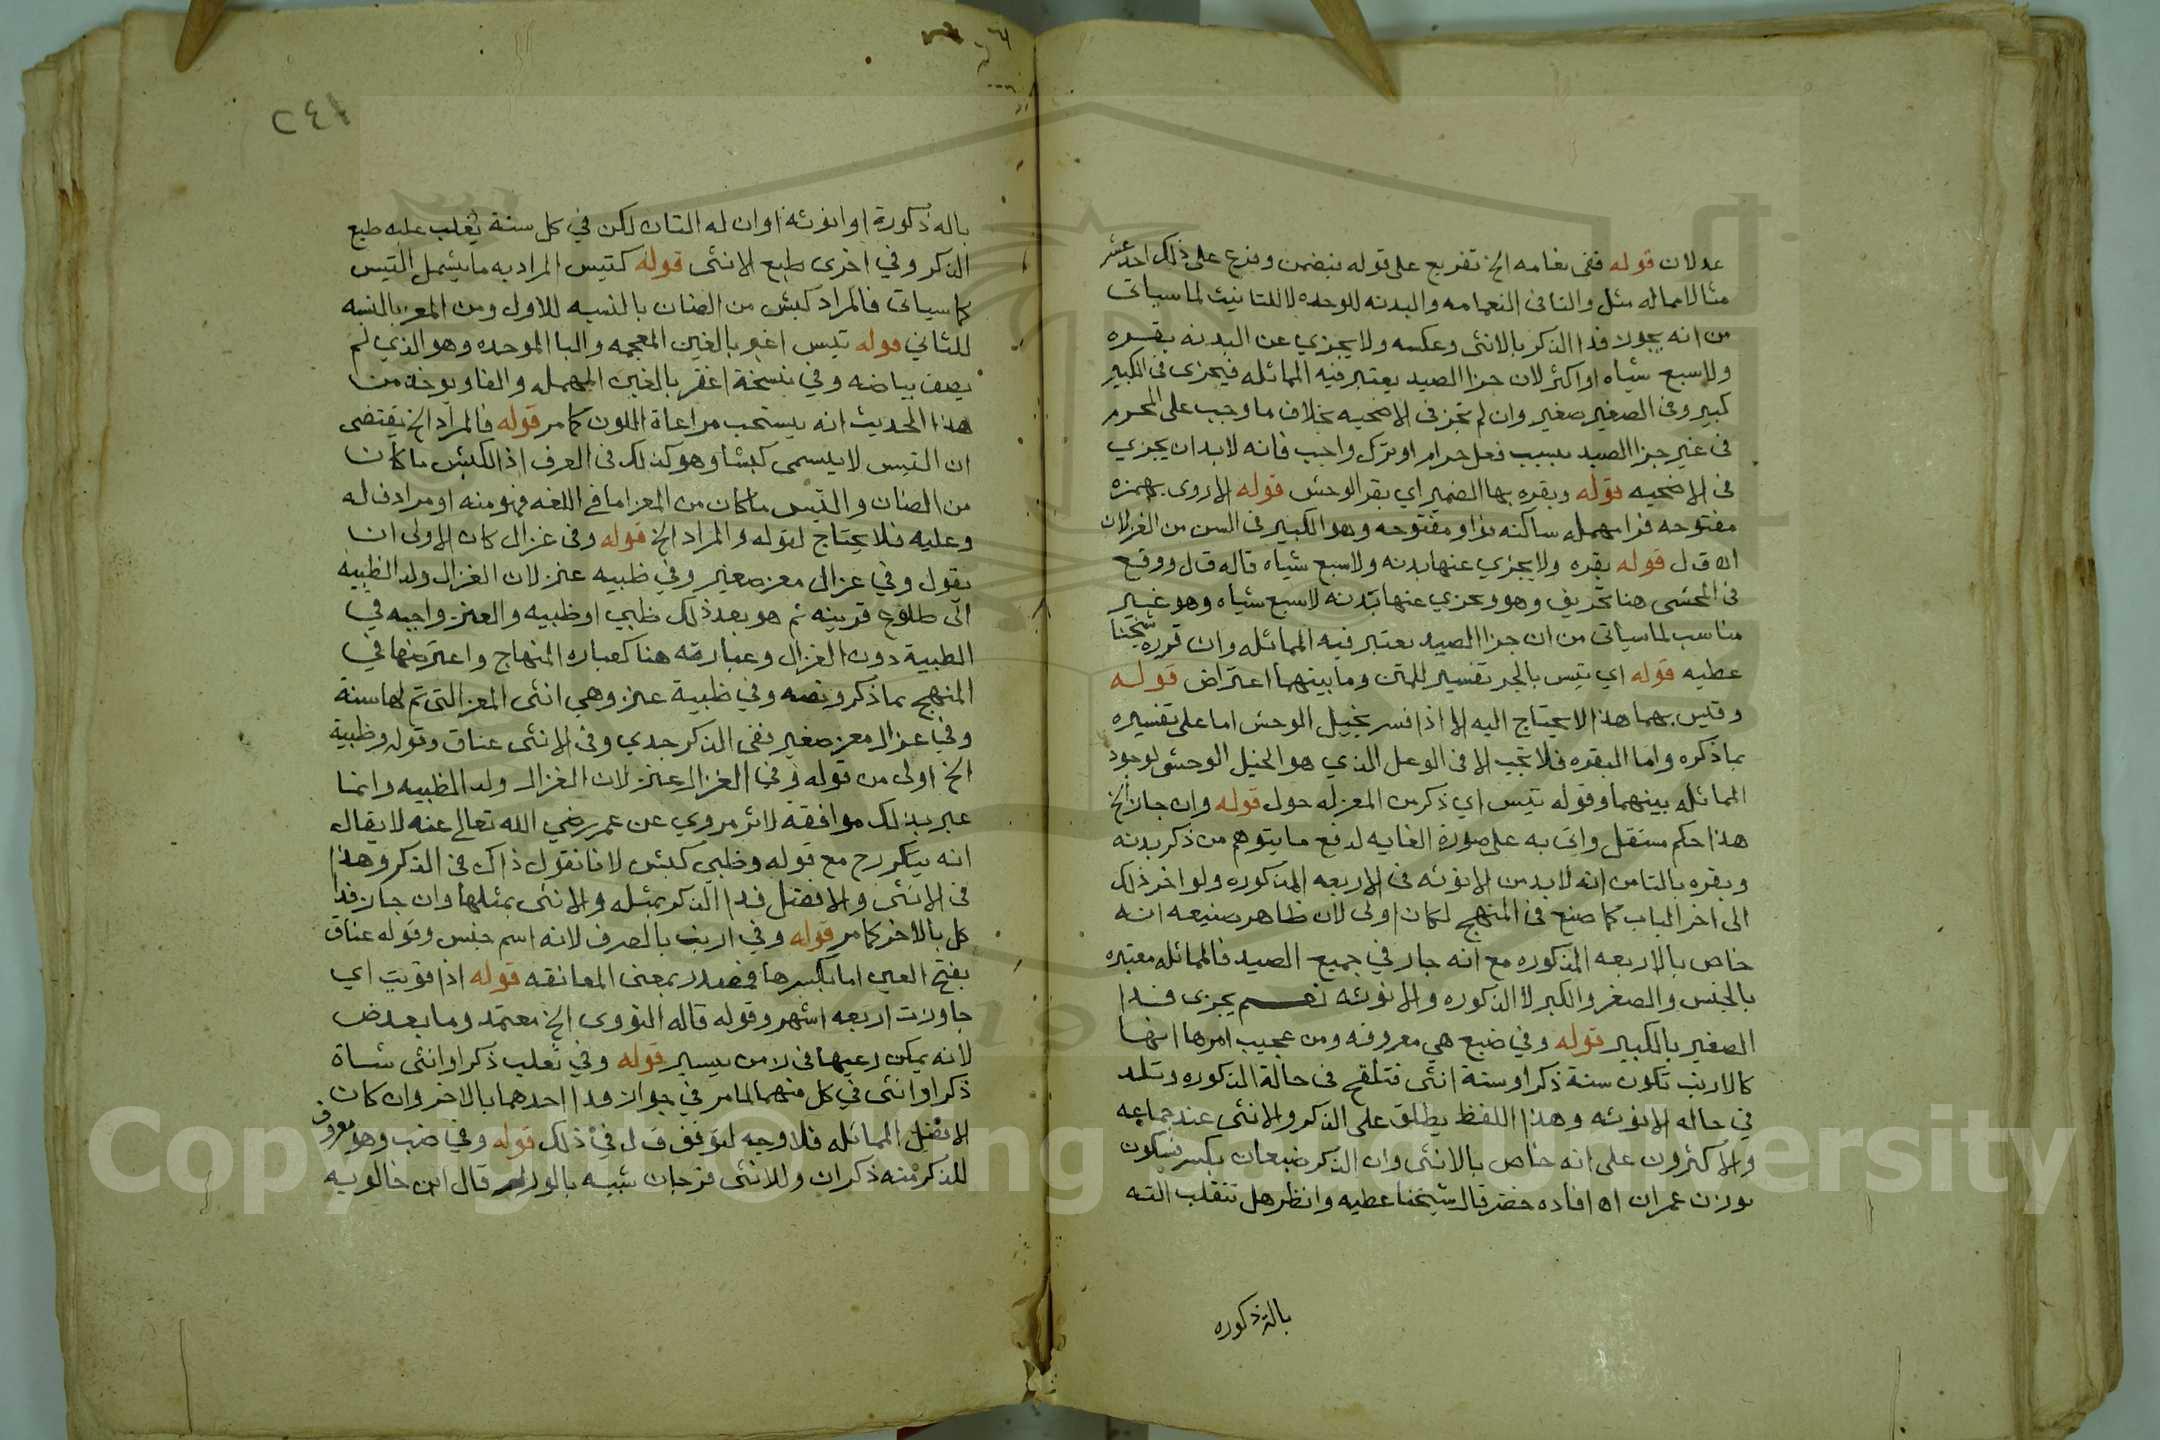 عدلان قوله ففي نعامه الخ تفريع على قوله فيضمن وفرع على ذلك احد عشر
مثالا لما له مثل والتا في النعامه والبدنه للوحده لا للتانيث لما سياتى
من انه يجوز فدا الذكر بالانثى وعكسه ولا يجزي عن البدنه بقره
ولا سبع شياه او اكثر لان جزا الصيد يعتبر فيه المماثله فيجزى فى الكبير
كبير وفى الصغير صغير وان لم تجز فى الاضحيه بخلاف ما وجب على المحرم
فى غير جزا الصيد بسبب فعل حرام او ترك واجب فانه لا بد ان يجزي
فى الاضحيه قوله وبقره بها الضمير اي بقر الوحش قوله الاروى بهمزه
مفتوحه فرا مهمله ساكنه فواو مفتوحه وهو الكبير فى السن من الغزلان
اه ق ل قوله بقره ولا يجزي عنها بدنه ولا سبع شياه قاله ق ل ووقع
فى المحشى هنا تحريف وهو ويجزي عنها بدنه لا سبع شياه وهو غير
مناسب لما سياتى من ان جزا الصيد يعتبر فيه المماثله وان قرره شيخنا
عطيه قوله اي تيس بالجر تفسير للمتن وما بينهما اعتراض قوله
وقيس بهما هذا لا يحتاج اليه الا اذا فسر بخيل الوحش اما على تفسيره
بما ذكره واما البقره فلا تجب الا فى الوعل الذي هو الخيل الوحشى لوجود
المماثله بينهما وقوله تيس اي ذكر من المعز له حول قوله وان جاز الخ
هذا حكم مستقل واتى به على صورة الغايه لدفع ما يتوهم من ذكر بدنه
وبقره بالتا من انه لا بد من الانوثه فى الاربعه المذكوره ولو اخر ذلك
الى اخر الباب كما صنع فى المنهج لكان اولى لان ظاهر صنيعه انه
خاص بالاربعه المذكوره مع انه جار في جميع الصيد فالمماثله معتبره
بالجنس والصغر والكبر لا الذكوره والانوثه نعم يجزى فدا
الصغير بالكبير قوله وفي ضبع هي معروفه ومن عجيب امرها انها
كالارنب تكون سنة ذكرا وسنة انثى فتلقح فى حالة الذكوره وتلد
في حاله الانوثه وهذا اللفظ يطلق على الذكر والانثى عند جماعه
والاكثرون على انه خاص بالانثى وان الذكر ضبعان بكسر فسكون
بوزن عمران اه افاده خضر قال شيخنا عطيه وانظر هل تنقلب التة
بالة ذكوره
٢٤١
بالة ذكورة او انوثة او ان له التان لكن في كل سنة يغلب عليه طبع
الذكر وفي اخرى طبع الانثى قوله كتيس المراد به ما يشمل التيس
كما سياتى فالمراد كبش من الضان بالنسبه للاول ومن المعز بالنسبه
للثاني قوله تيس اغبر بالغين المعجمه والبا الموحده وهو الذي لم
يصف بياضه وفي نسخة اعفر بالعين المهمله والفا ويوخذ من
هذا الحديث انه يستحب مراعاة اللون كما مر قوله فالمراد الخ يقتضى
ان التيس لا يسمى كبشا وهو كذلك فى العرف اذ الكبش ما كان
من الضان والتيس ما كان من المعز اما في اللغه فهو منه او مرادف له
وعليه فلا يحتاج لقوله والمراد الخ قوله وفى غزال كان الاولى ان
يقول وفي غزال معز صغير وفي ظبيه عنز لان الغزال ولد الظبيه
الى طلوع قرينه ثم هو بعد ذلك ظبي او ظبيه والعنز واجبه في
الظبية دون الغزال وعبارته هنا كعباره المنهاج واعترضها في
المنهج بما ذكر ونصه وفي ظبية عنز وهي انثى المعز التى تم لها سنة
وفى غزال معز صغير ففى الذكر جدي وفى الانثى عناق وقوله وظبية
الخ اولى من قوله وفي الغزال عنز لان الغزال ولد الظبيه وانما
عبر بذلك موافقه لاثر مروي عن عمر رضي الله تعالى عنه لا يقال
انه يتكرر ح مع قوله وظبي كبش لانا نقول ذاك فى الذكر وهذا
فى الانثى والافضل فدا الذكر بمثله والانثى بمثلها وان جاز فدا
كل بالاخر كما مر قوله وفي ارنب بالصرف لانه اسم جنس وقوله عناق
بفتح العين اما بكسرها فمصدر بمعنى المعانقه قوله اذا قويت اي
جاوزت اربعه اشهر وقوله قاله النووى الخ معتمد وما بعد ض
لانه يمكن رعيها فى زمن يسير قوله وفي ثعلب ذكر او انثى شاة
ذكر او انثى في كل منهما لما مر في جواز فدا احدهما بالاخر وان كان
الافضل المماثله فلا وجه لتوقف ق ل فى ذلك قوله وفي ضب وهو معروف
للذكر منه ذكران وللانثى فرجان شبيه بالورل قال ابن خالويه